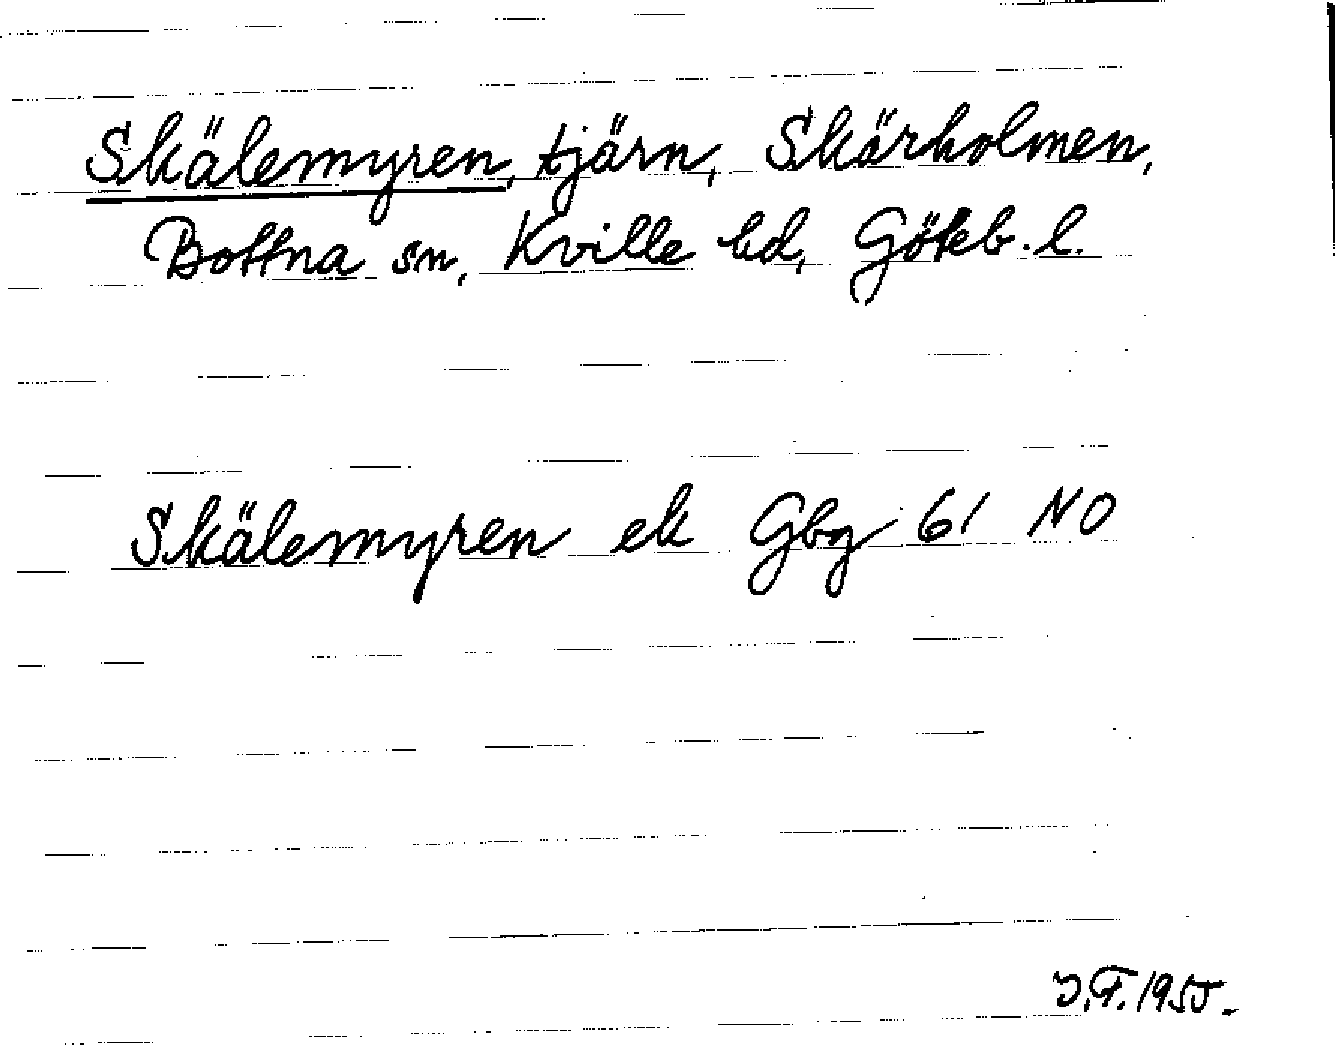 Skälemyren, tjärn, Skärholmen,
Bottna sn, Kville hd, Göteb. l.
Skälemyren ek Gbg 61 NO
J.F. 1955.